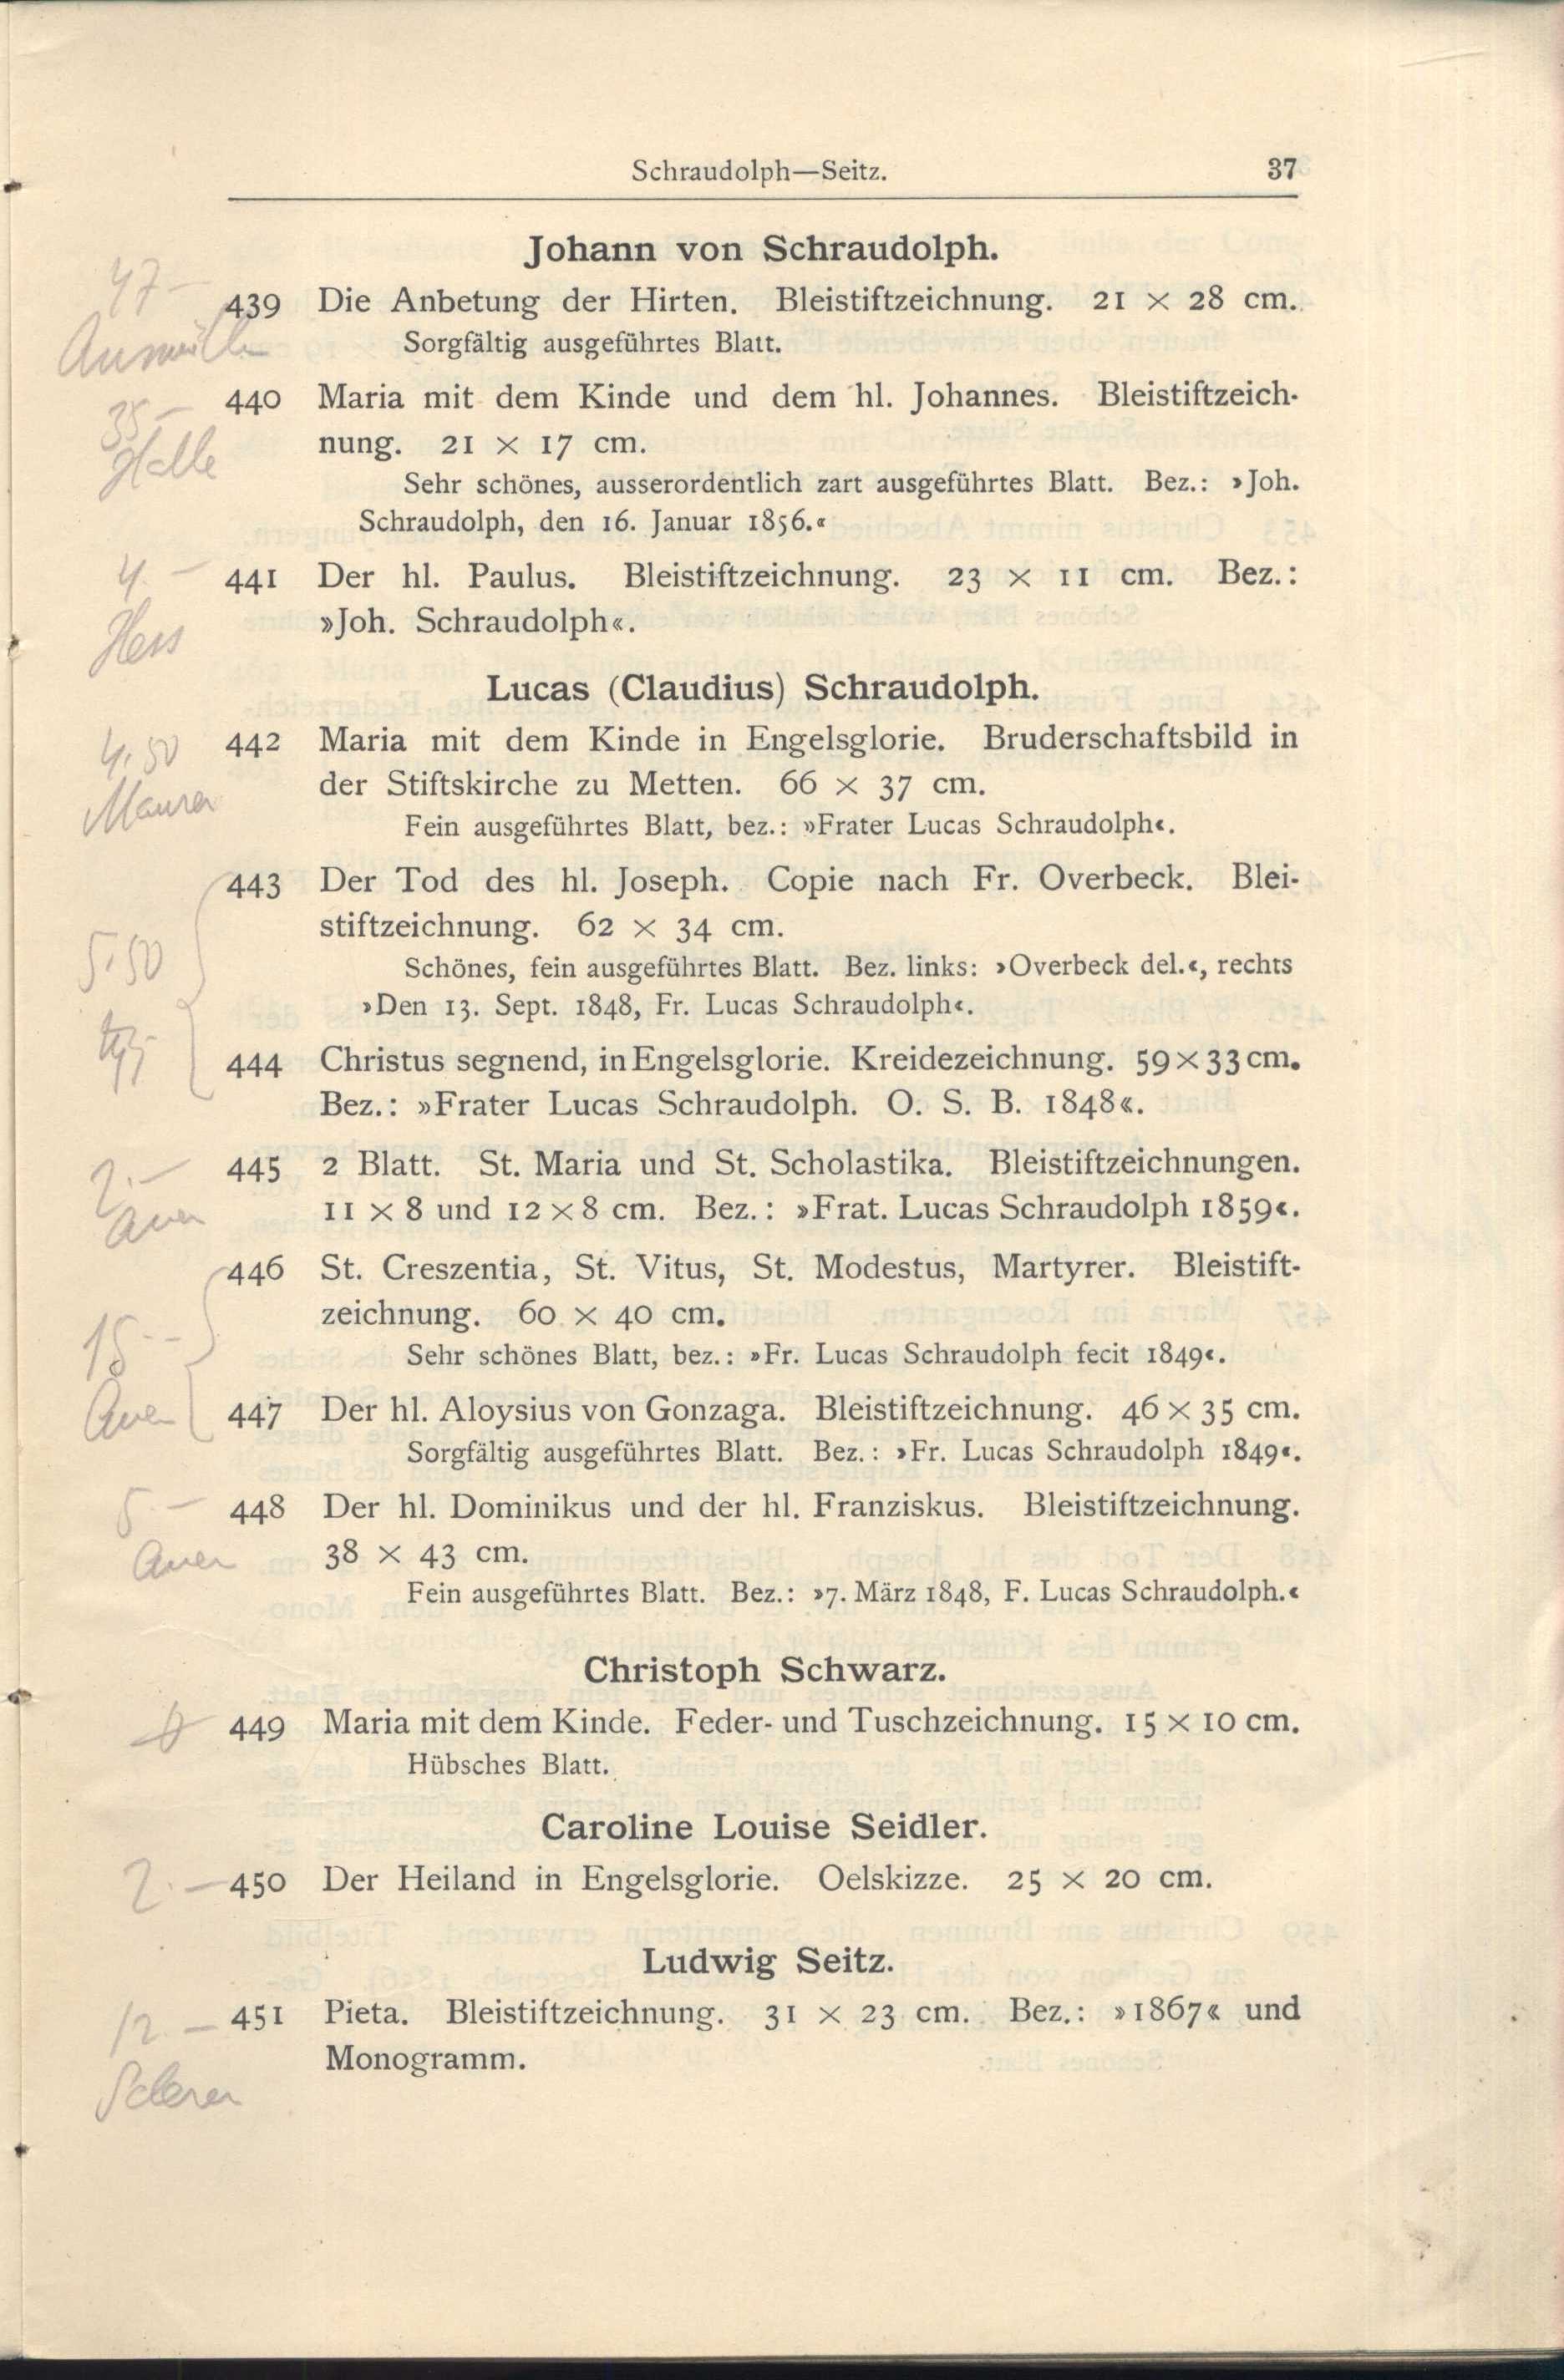 Schraudolph—Seitz. 37
Johann von Schraudolph.
47 —
439 Die Anbetung der Hirten. Bleistiftzeichnung. 21 × 28 cm.
Sorgfältig ausgeführtes Blatt.
35 —
440 Maria mit dem Kinde und dem hl. Johannes. Bleistiftzeich-
Halle
nung. 21 × 17 cm.
Sehr schönes, ausserordentlich zart ausgeführtes Blatt. Bez.: »Joh.
Schraudolph, den 16. Januar 1856.«
4. —
441 Der hl. Paulus. Bleistiftzeichnung. 23 × 11 cm. Bez.:
Hess
»Joh. Schraudolph«.
Lucas (Claudius) Schraudolph.
4.50
442 Maria mit dem Kinde in Engelsglorie. Bruderschaftsbild in
Maurer
der Stiftskirche zu Metten. 66 × 37 cm.
Fein ausgeführtes Blatt, bez.: »Frater Lucas Schraudolph«.
443 Der Tod des hl. Joseph. Copie nach Fr. Overbeck. Blei-
stiftzeichnung. 62 × 34 cm.
5.50
Schönes, fein ausgeführtes Blatt. Bez. links: »Overbeck del.«, rechts
»Den 13. Sept. 1848, Fr. Lucas Schraudolph«.
444 Christus segnend, in Engelsglorie. Kreidezeichnung. 59 × 33 cm.
Bez.: »Frater Lucas Schraudolph. O. S. B. 1848«.
2. —
445 2 Blatt. St. Maria und St. Scholastika. Bleistiftzeichnungen.
Auer
11 × 8 und 12 × 8 cm. Bez.: »Frat. Lucas Schraudolph 1859«.
446 St. Creszentia, St. Vitus, St. Modestus, Martyrer. Bleistift-
zeichnung. 60 × 40 cm.
15. —
Sehr schönes Blatt, bez.: »Fr. Lucas Schraudolph fecit 1849«.
Auer
447 Der hl. Aloysius von Gonzaga. Bleistiftzeichnung. 46 × 35 cm.
Sorgfältig ausgeführtes Blatt. Bez.: »Fr. Lucas Schraudolph 1849«.
5. —
448 Der hl. Dominikus und der hl. Franziskus. Bleistiftzeichnung.
Auer
38 × 43 cm.
Fein ausgeführtes Blatt. Bez.: »7. März 1848, F. Lucas Schraudolph.«
Christoph Schwarz.
449 Maria mit dem Kinde. Feder- und Tuschzeichnung. 15 × 10 cm.
Hübsches Blatt.
Caroline Louise Seidler.
2. —
450 Der Heiland in Engelsglorie. Oelskizze. 25 × 20 cm.
Ludwig Seitz.
12. —
451 Pieta. Bleistiftzeichnung. 31 × 23 cm. Bez.: »1867« und
Monogramm.